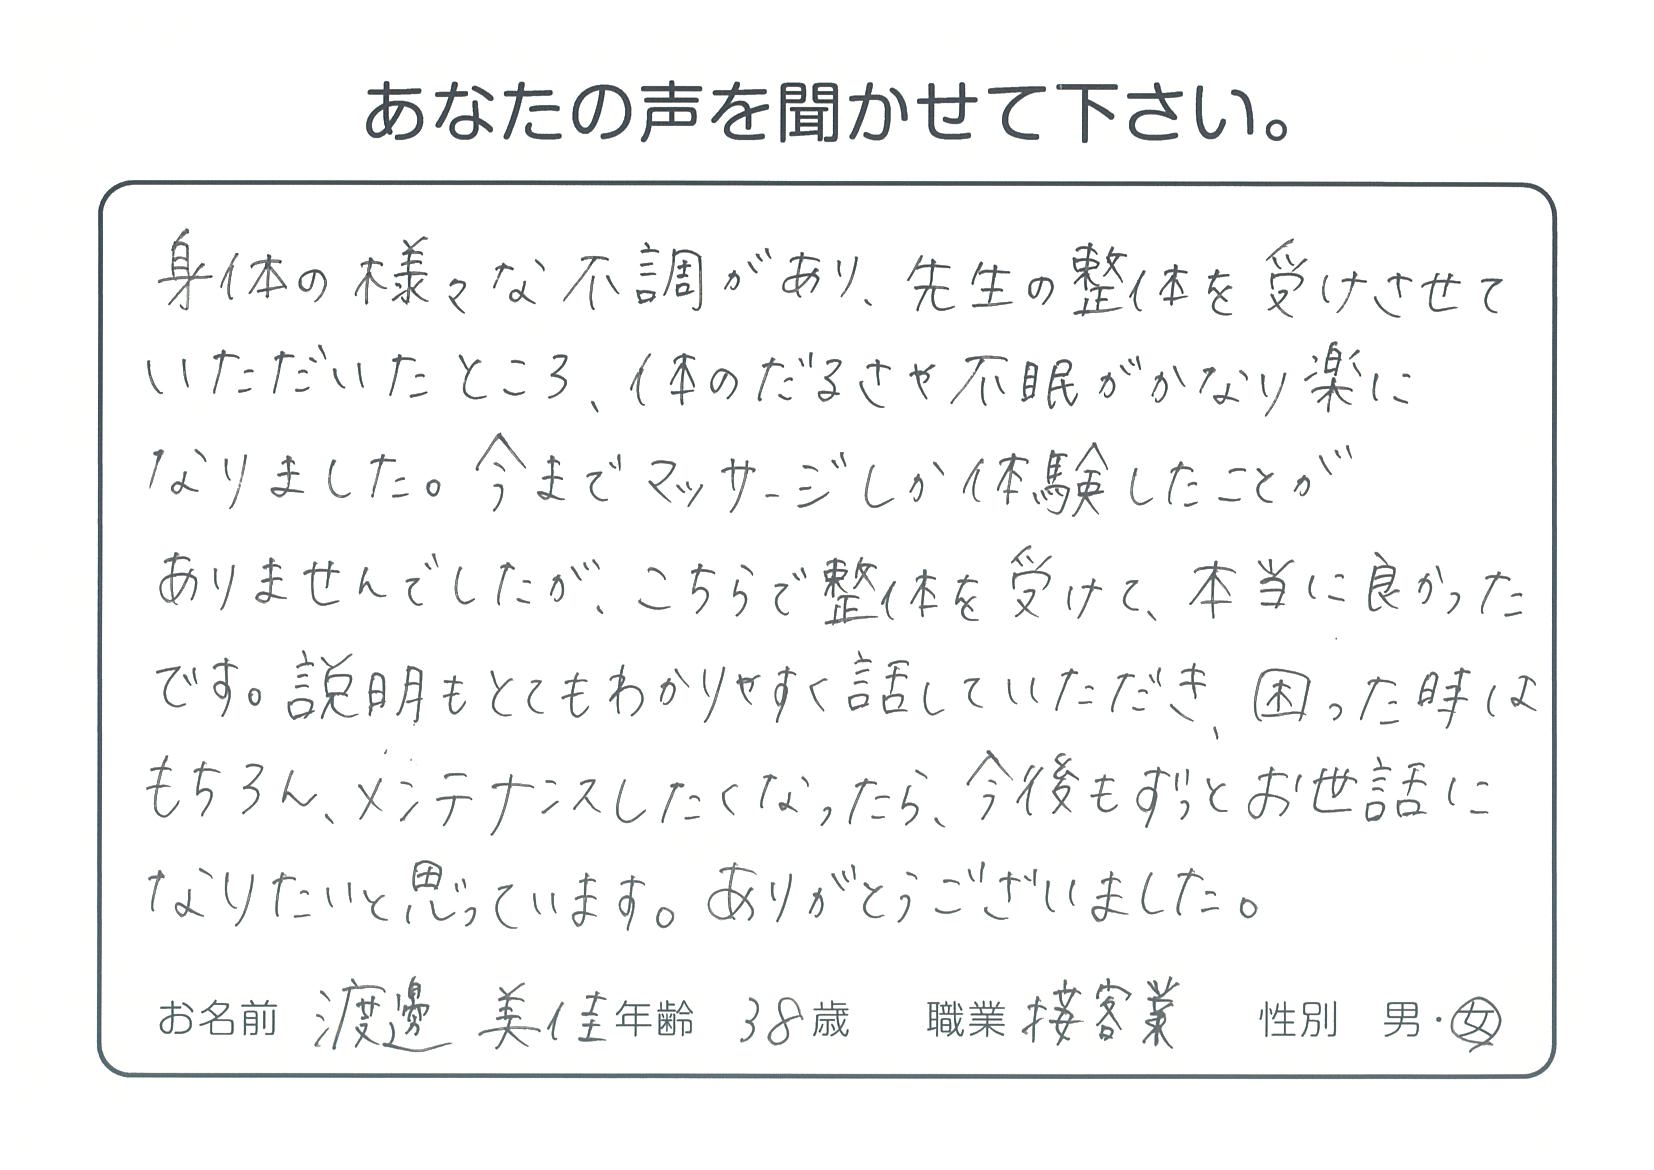 あなたの声を聞かせて下さい。
身体の様々な不調があり、先生の整体を受けさせて
いただいたところ、体のだるさや不眠がかなり楽に
なりました。今までマッサージしか体験したことが
ありませんでしたが、こちらで整体を受けて、本当に良かった
です。説明もとてもわかりやすく話していただき、困った時は
もちろん、メンテナンスしたくなったら、今後もずっとお世話に
なりたいと思っています。ありがとうございました。
お名前 渡邊 美佳 年齢 38歳 職業 接客業 性別 男・女